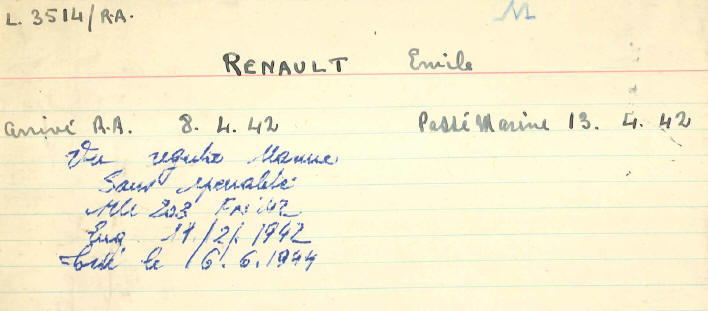 L. 3514/R.A.
M
RENAULT Emile
Arrivé R.A. 8. 4. 42 Passé Marine 13. 4. 42
Vu registre Marine
Sans spécialité
Mle 203 FN 42
Eng. 11/2/.1942
le 6.6.1944